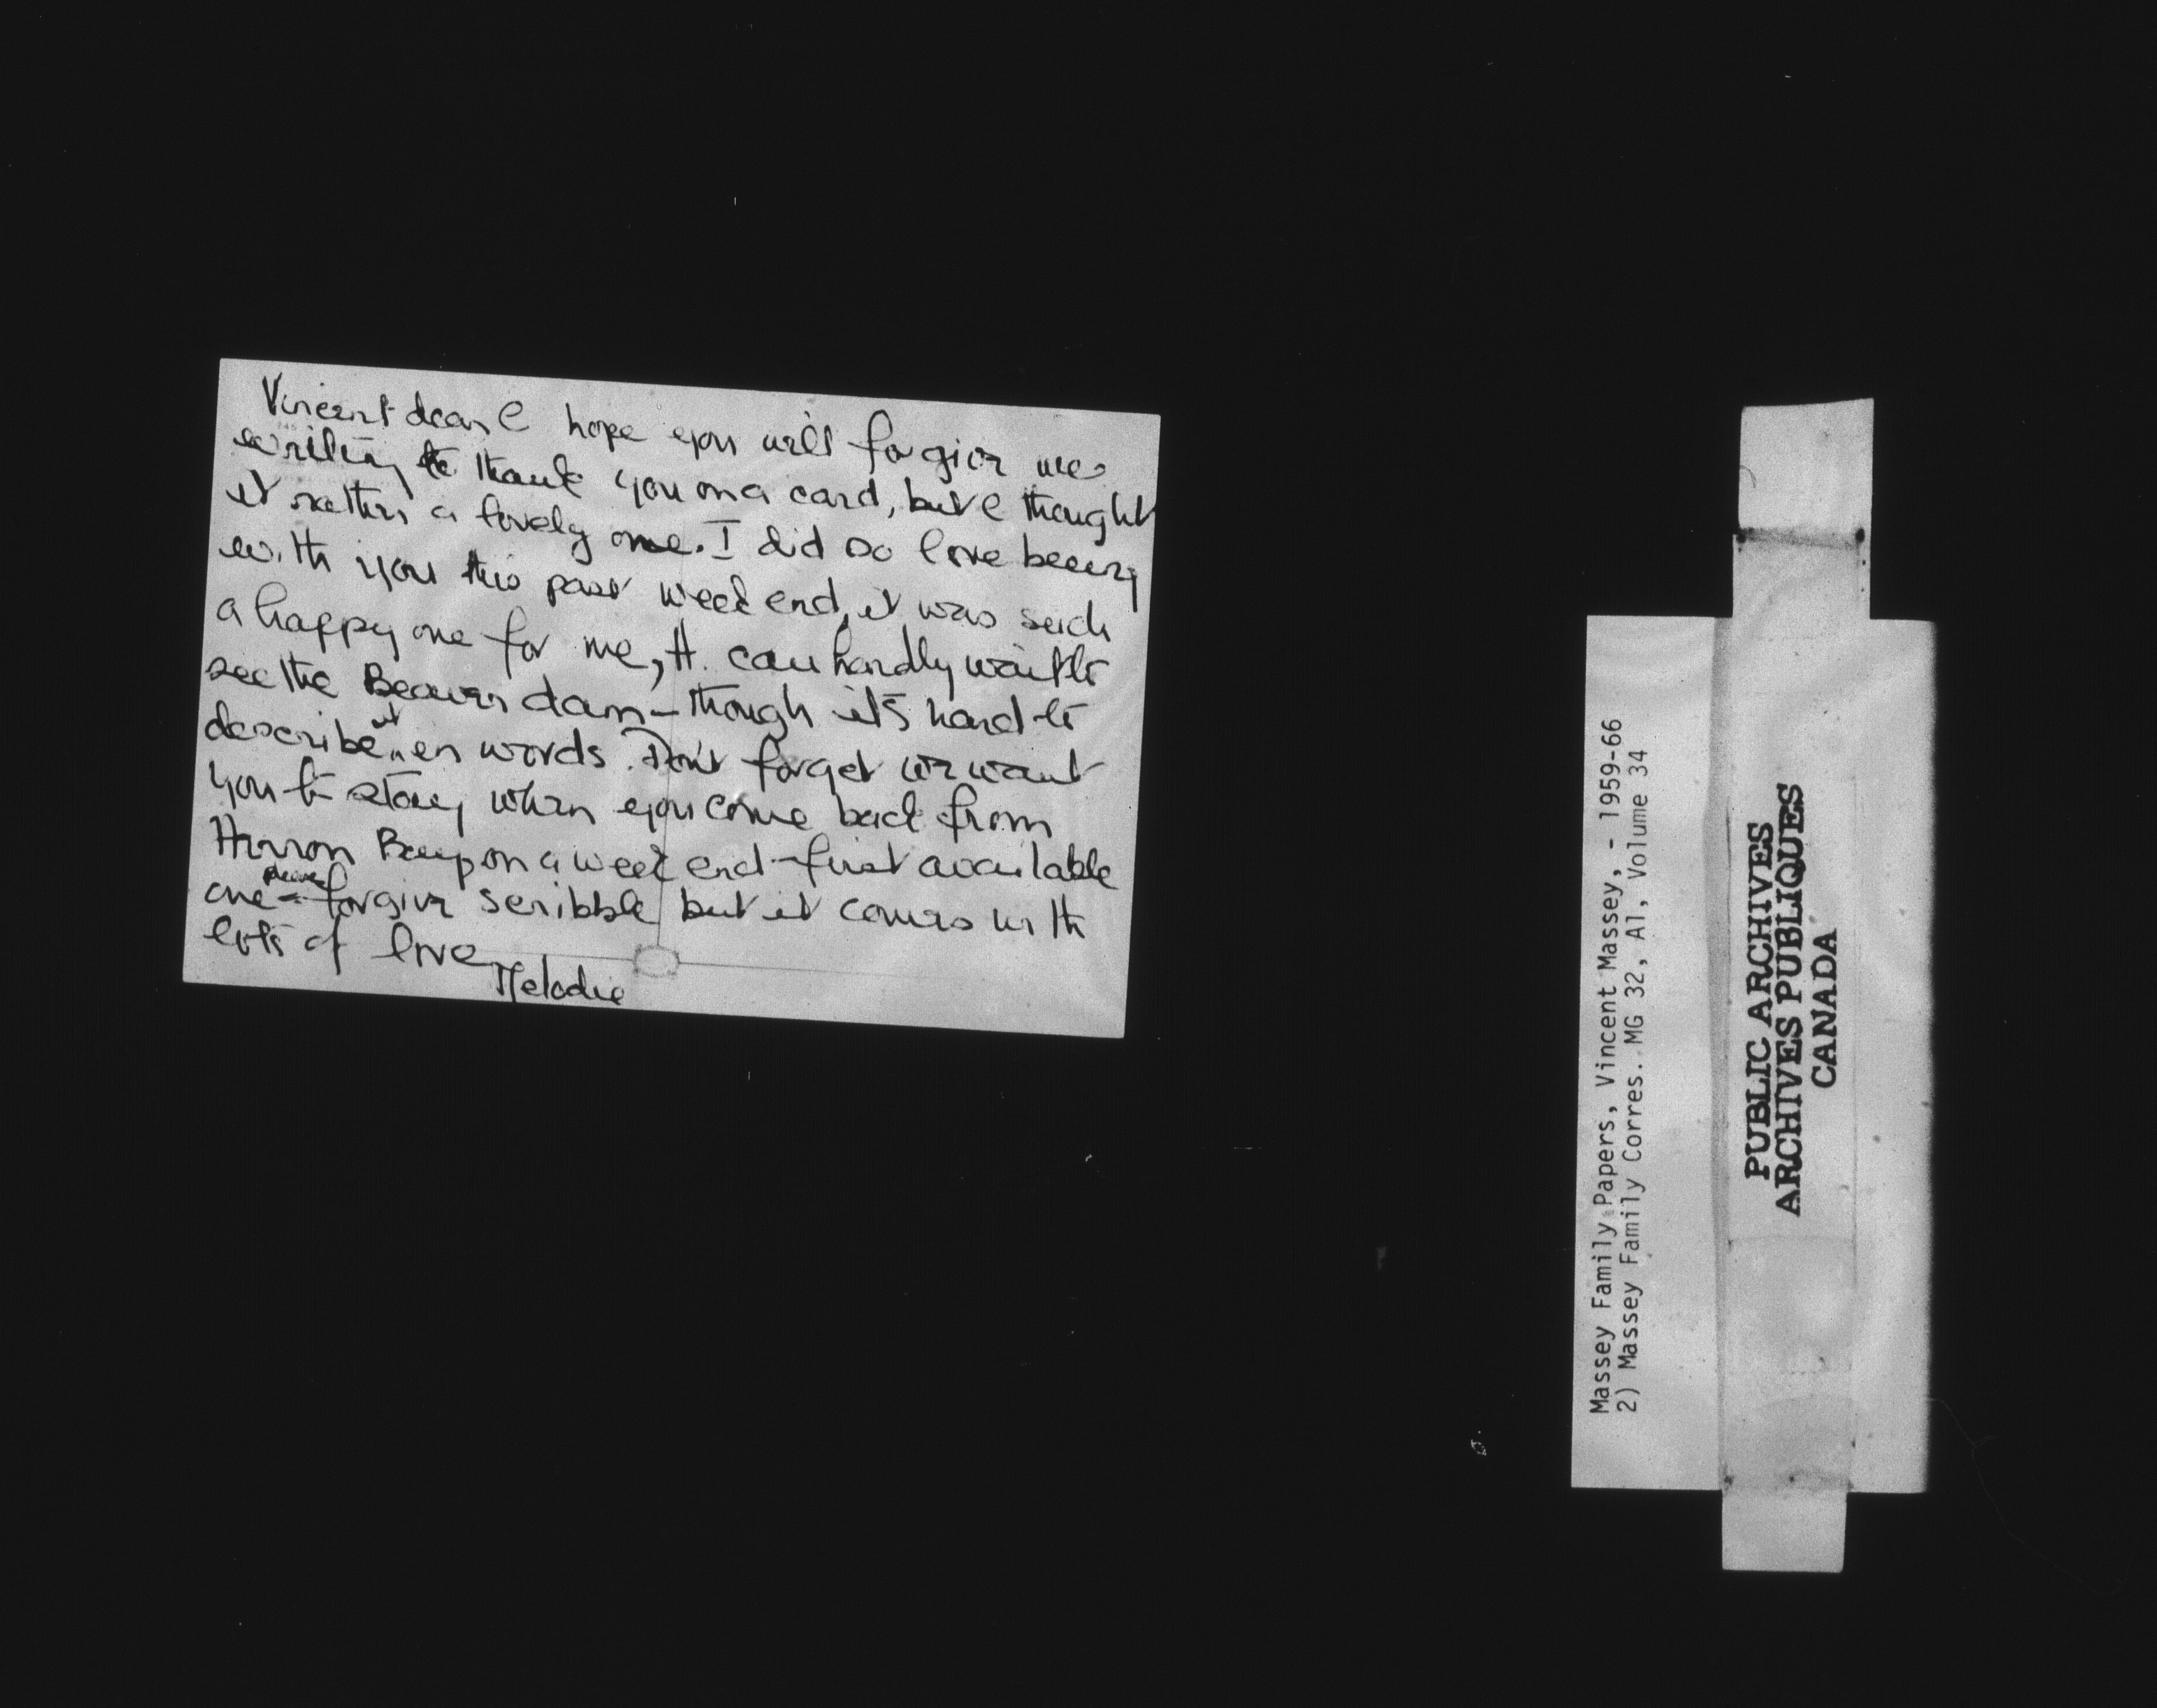 Vincent dear I hope you will forgive me
writing to thank you on a card, but I thought
it rather a lovely one. I did so love being
with you this past weekend, it was such
a happy one for me, H. can hardly wait to
see the Beavers dam – though it's hard to
describe it in words. Don't forget we want
you to stay when you come back from
Huron Bay on a week end – first available
one – please forgive scribble but it comes with
lots of love
Melodie
Massey Family Papers, Vincent Massey, - 1959-66
2) Massey Family Corres. MG 32, A1, Volume 34
PUBLIC ARCHIVES
ARCHIVES PUBLIQUES
CANADA